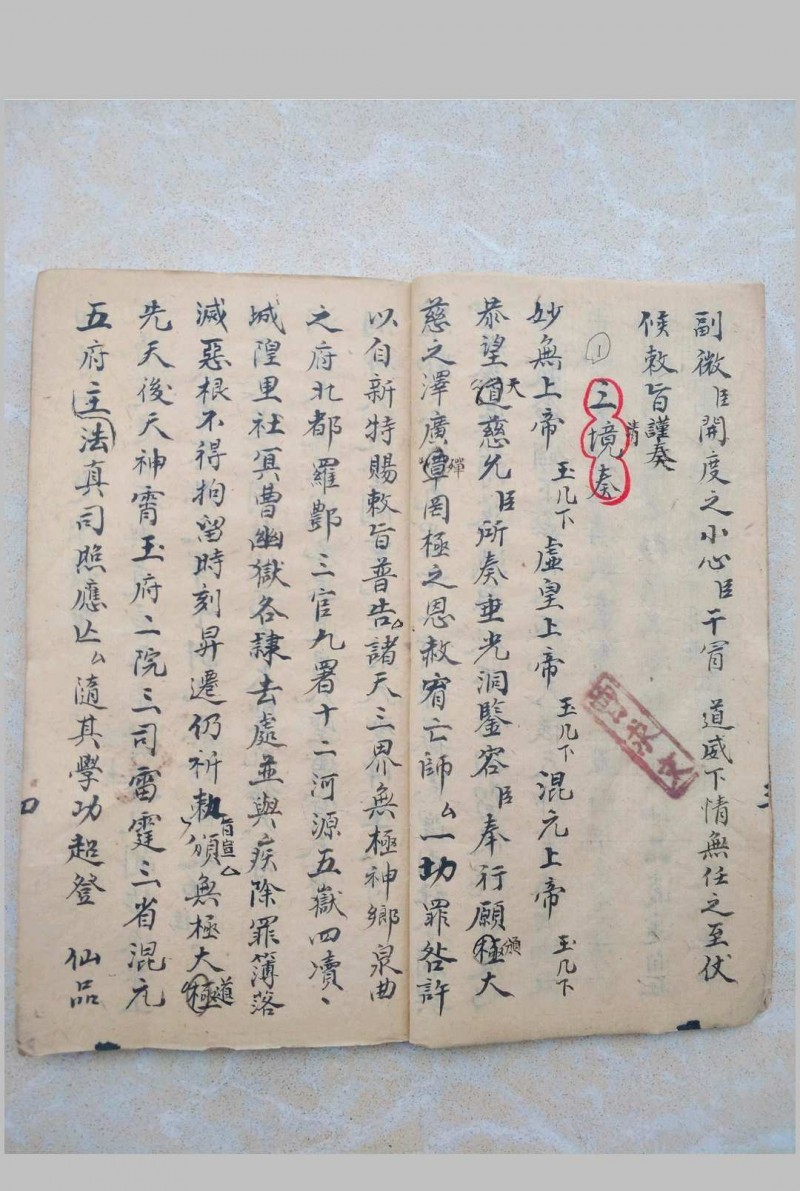 副微臣開度之小心臣干冐　道威下情無任之至伏
候敕旨謹奏
①三境奏
請
妙無上帝　玉几下　虛皇上帝　玉几下　混元上帝　玉几下
恭望道慈允臣所奏垂光洞鑒容臣奉行願極大
天　頒
慈之澤廣覃罔極之恩赦宥亡師厶一切罪咎許
以自新特賜敕旨普告厶諸天三界無極神鄉泉曲
之府北都羅酆三官九署十二河源五嶽四瀆、
城隍里社冥曹幽獄各隸去處並與疾除罪簿落
滅惡根不得拘留時刻昇遷仍祈勅頒無極大極
旨宣厶　道
先天後天神霄玉府二院三司雷霆三省混元
五府主法真司照應亡厶隨其學功超登　仙品